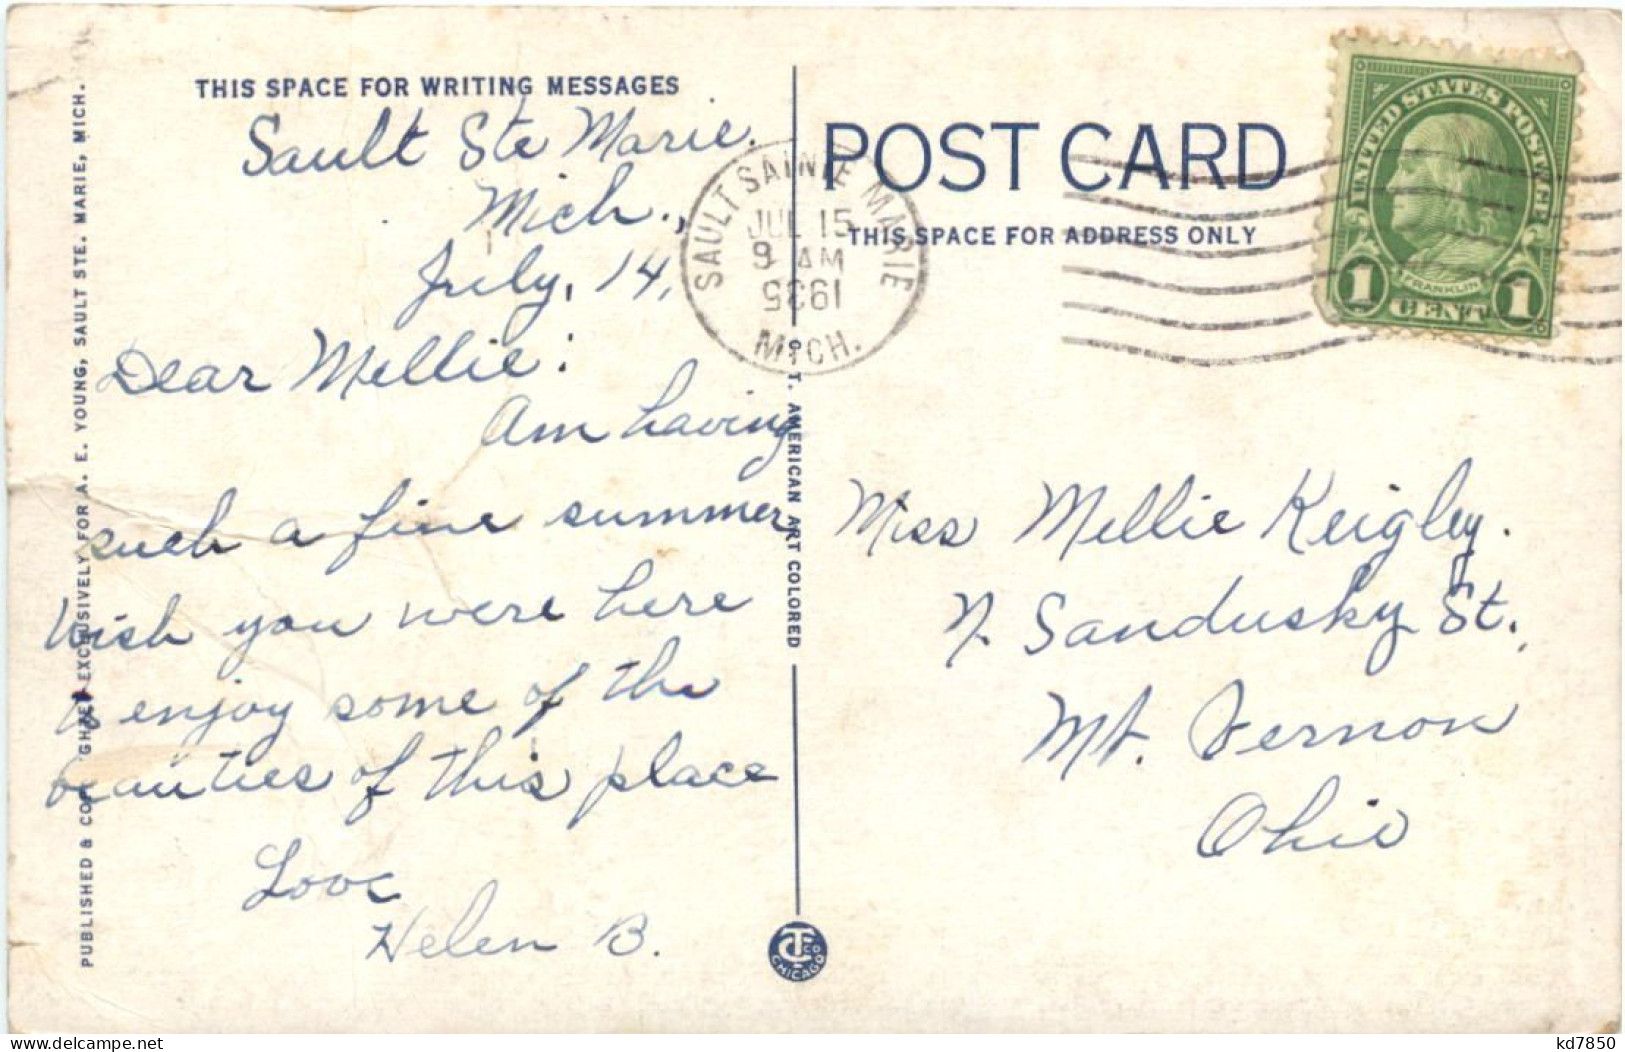 THIS SPACE FOR WRITING MESSAGES
Sault Ste Marie.
Mich.,
July, 14,
Dear Mellie:
Am having
such a fine summer
Wish you were here
to enjoy some of the
beauties of this place
Love
Helen B.
PUBLISHED & COPYRIGHTED EXCLUSIVELY FOR A. E. YOUNG, SAULT STE. MARIE, MICH.
C. T. AMERICAN ART COLORED
C T CO
CHICAGO
POST CARD
THIS SPACE FOR ADDRESS ONLY
SAULT SAINTE MARIE
JUL 15
9 AM
1935
MICH.
UNITED STATES POSTAGE
FRANKLIN
1 CENT 1
Miss Mellie Keigley.
N. Sandusky St.
Mt. Vernon
Ohio
kd7850